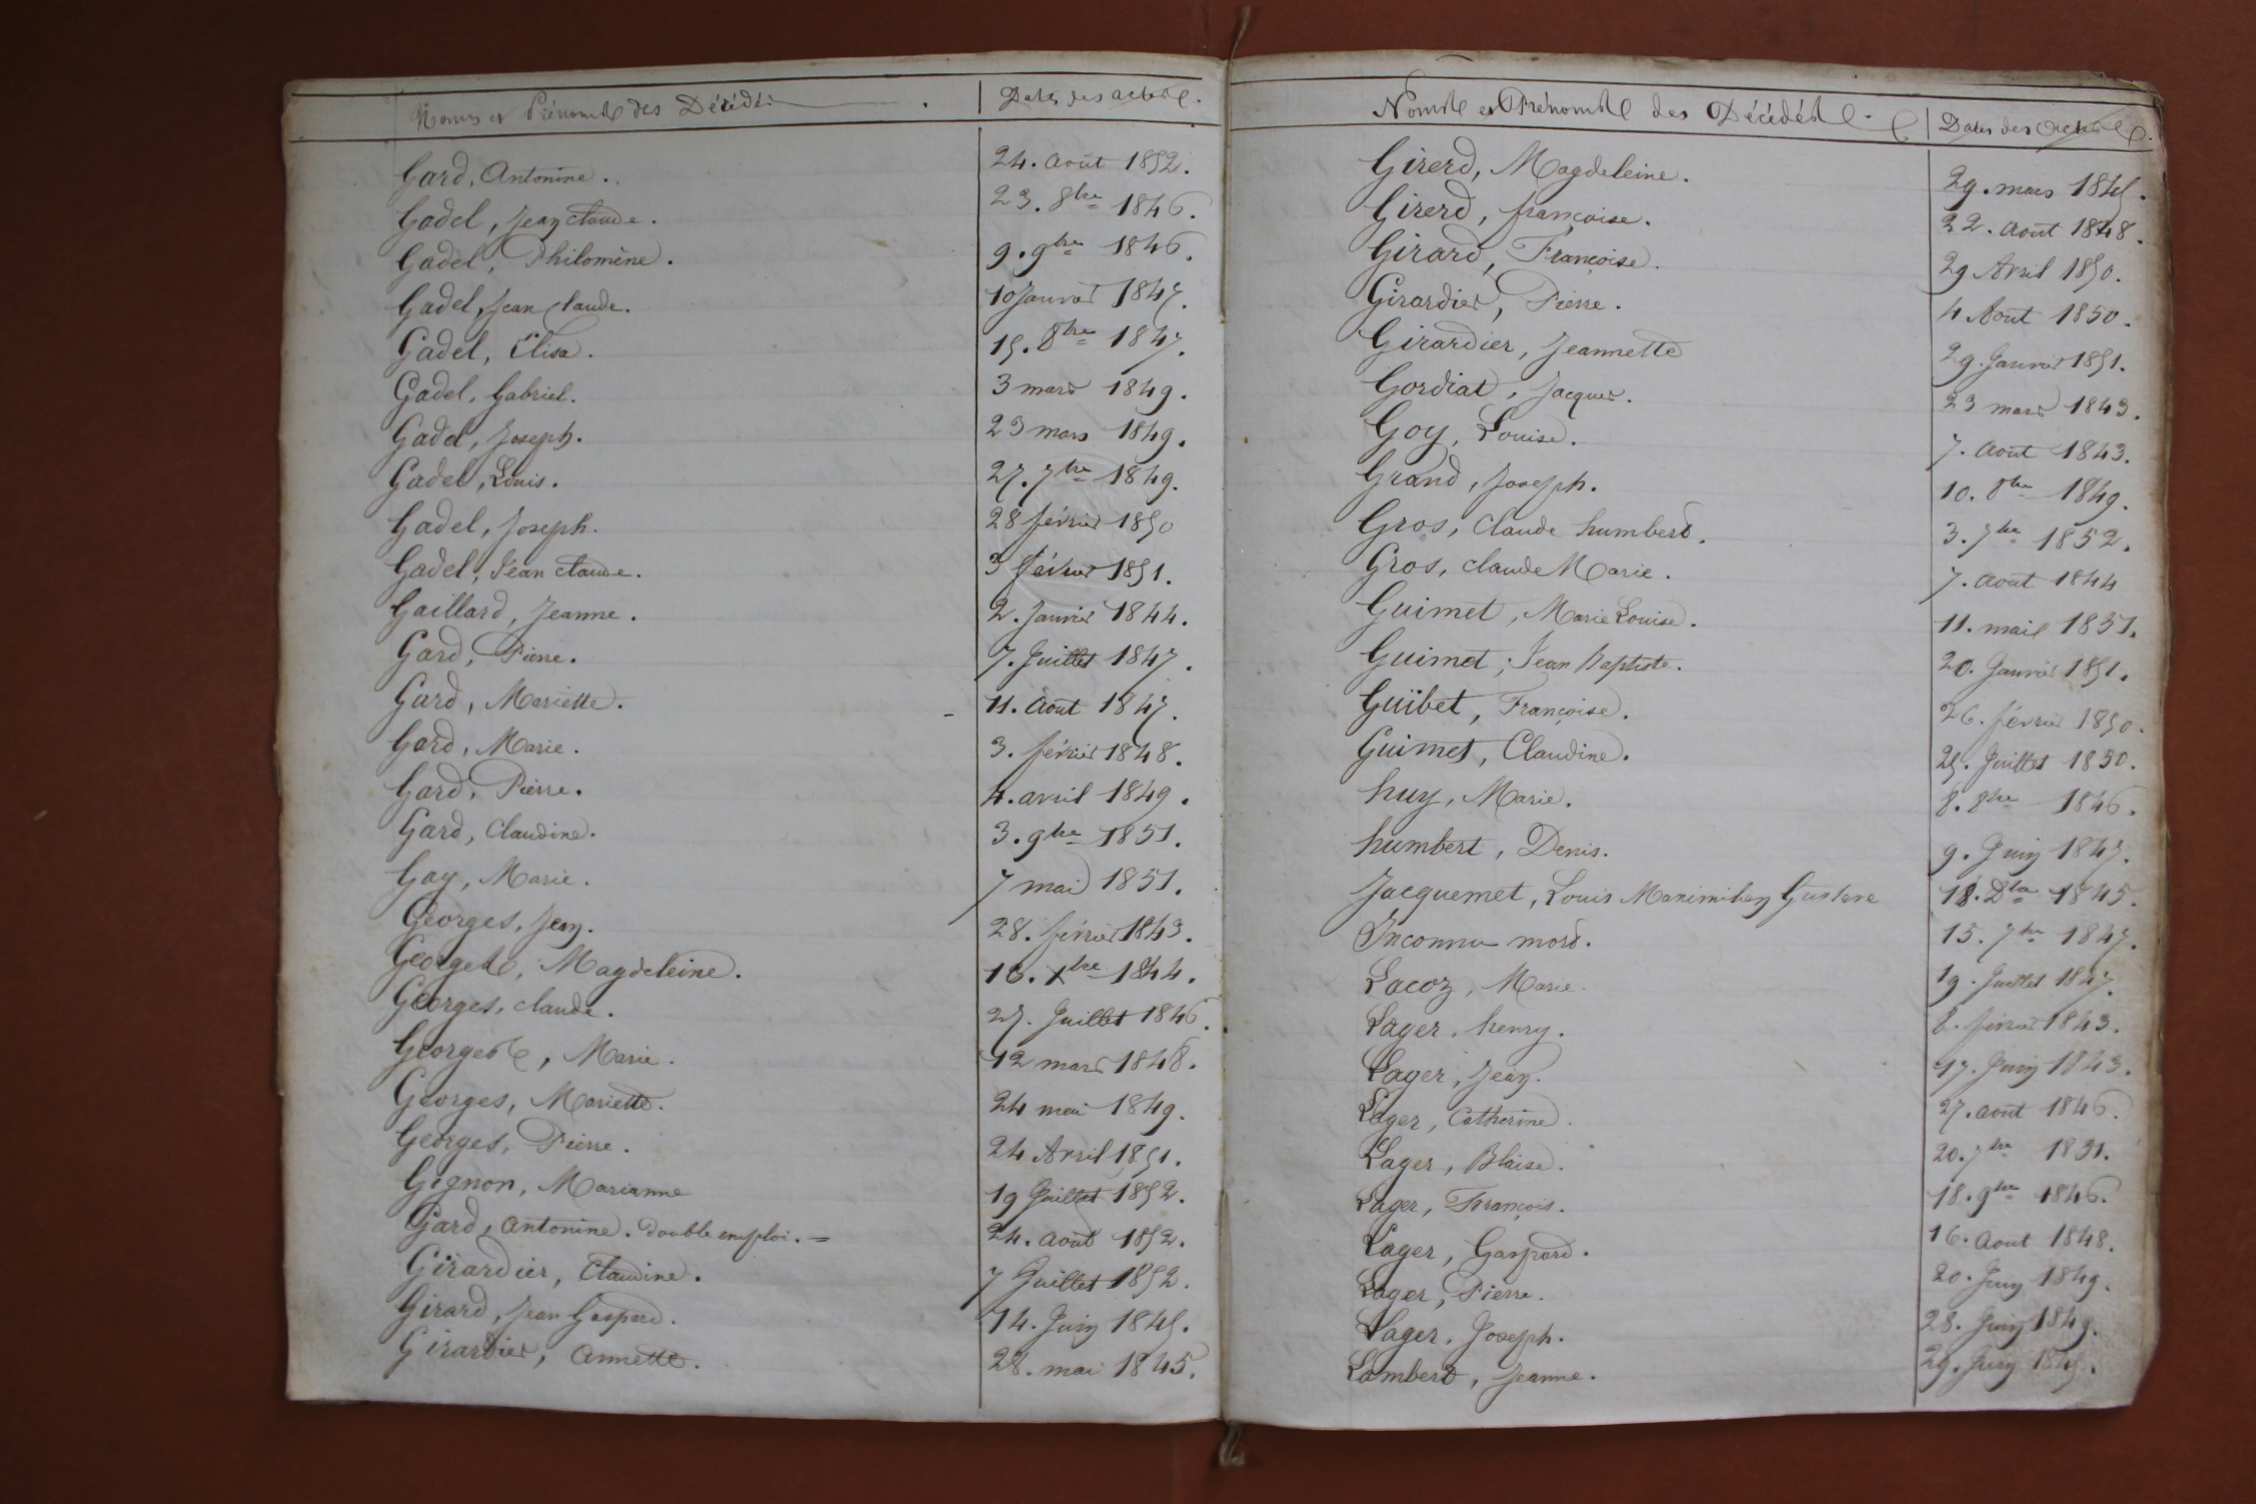 Noms et Prénoms des Décédés. Dates des actes.
Gard, Antonine. 24. août 1852.
Gadel, Jean claude. 23. 8bre 1846.
Gadel, Philomène. 9. 9bre 1846.
Gadel, Jean Claude. 10 Janvier 1847.
Gadel, Élisa. 15. 8bre 1847.
Gadel, Gabriel. 3 mars 1849.
Gadel, Joseph. 23 mars 1849.
Gadel, Louis. 27. 7bre 1849.
Gadel, Joseph. 28 février 1850
Gadel, Jean claude. 3 février 1851.
Gaillard, Jeanne. 2. Janvier 1844.
Gard, Pierre. 7. Juillet 1847.
Gard, Mariette. 11. Août 1847.
Gard, Marie. 3. février 1848.
Gard, Pierre. 4. avril 1849.
Gard, Claudine. 3. 9bre 1851.
Gay, Marie. 7 mai 1851.
Georges, Jean. 28. février 1843.
Georges, Magdeleine. 16. Xbre 1844.
Georges, claude. 27. Juillet 1846.
Georges, Marie. 12 mars 1848.
Georges, Mariette. 24 mai 1849.
Georges, Pierre. 24 Avril 1851.
Gignon, Marianne 19 Juillet 1852.
Gard, Antonine. Double emploi. = 24. août 1852.
Girardier, Claudine. 7 Juillet 1852.
Girard, Jean Gaspard. 14. Juin 1845.
Girardier, Annette. 28. mai 1845.
Noms et Prénoms des Décédés. Dates des Actes.
Girerd, Magdeleine. 29. mars 1845.
Girerd, françoise. 22. août 1848.
Girard, Françoise. 29 Avril 1850.
Girardier, Pierre. 4 Août 1850.
Girardier, Jeannette 29. Janvier 1851.
Gordiat, Jacques. 23 mars 1843.
Goy, Louise. 7. août 1843.
Grand, Joseph. 10. 8bre 1849.
Gros, Claude humbert. 3. 7bre 1852.
Gros, claude Marie. 7. août 1844
Guimet, Marie Louise. 11. mail 1851.
Guimet, Jean Baptiste. 20. Janvier 1851.
Guibet, Françoise. 26. février 1850.
Guimet, Claudine. 25. Juillet 1850.
huy, Marie. 8. 8bre 1846.
humbert, Denis. 9. Juin 1847.
Jacquemet, Louis Maximilien Gustave 18. 1845.
Inconnu mort. 15. 7bre 1847.
Lacoz, Marie. 19. Juillet 1847.
Lager, henry. 8. février 1843.
Lager, Jean. 17. Juin 1843.
Lager, Catherine. 27. août 1846.
Lager, Blaise. 20. 7bre 1851.
Lager, François. 18. 9bre 1846.
Lager, Gaspard. 16. Aout 1848.
Lager, Pierre. 20. Juin 1849.
Lager, Joseph. 28. Juin 1849.
Lambert, Jeanne. 29. Juin 1845.